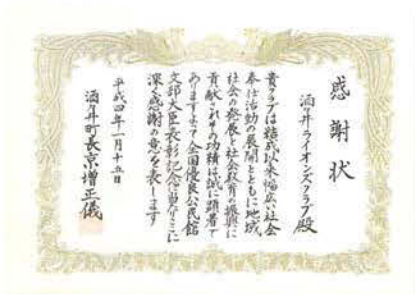 感謝状
酒々井ライオンズクラブ殿
貴クラブは結成以来幅広い社会
奉仕活動の展開とともに地域
社会の発展と社会教育の振興に
貢献されその功績は誠に顕著で
あります よって全国優良公民館
文部大臣表彰記念に当たりここに
深く感謝の意を表します
平成四年一月十五日
酒々井町長京増正儀